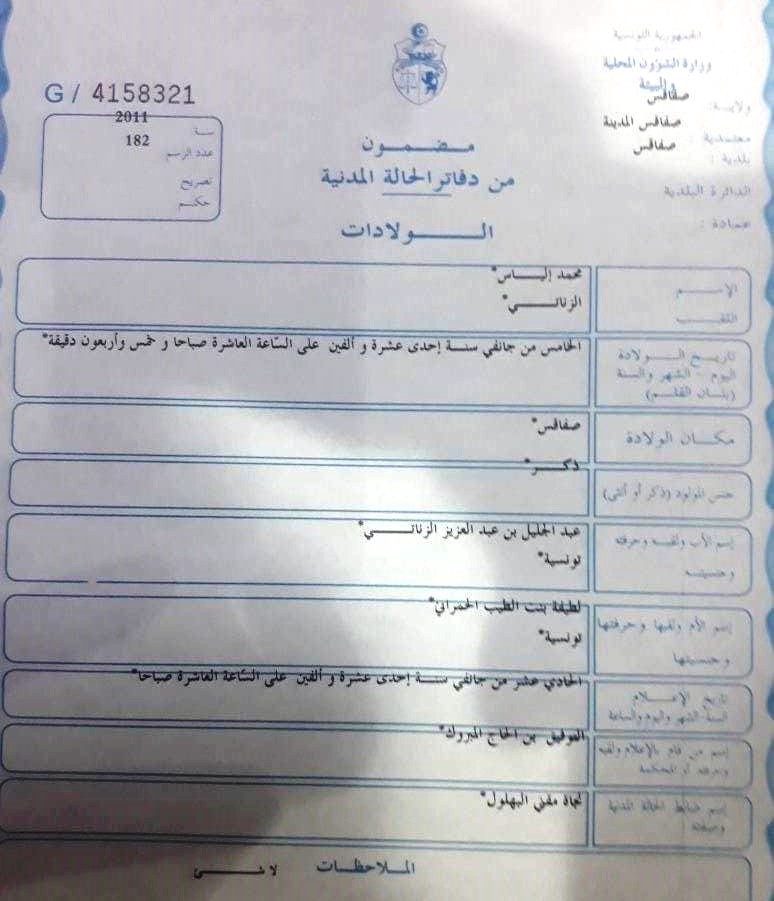 الجمهورية التونسية
وزارة الشؤون المحلية
والبيئة
ولاية: صفاقس
معتمدية: صفاقس المدينة
بلدية: صفاقس
الدائرة البلدية
عمادة:
G / 4158321
سنة 2011
عدد الرسم 182
تصريح
حكم
مضمون
من دفاتر الحالة المدنية
الولادات
الإسم محمد إلياس*
اللقب الزناتي*
تاريخ الولادة الخامس من جانفي سنة إحدى عشرة و ألفين على الساعة العاشرة صباحا و خمس وأربعون دقيقة*
اليوم - الشهر والسنة
(بلسان القلم)
مكان الولادة صفاقس*
جنس المولود (ذكر أو أنثى) ذكر*
إسم الأب ولقبه وحرفته عبد الجليل بن عبد العزيز الزناتي*
وجنسيته تونسية*
إسم الأم ولقبها وحرفتها لطيفة بنت الطيب الحمراني*
وجنسيتها تونسية*
تاريخ الإعلام الحادي عشر من جانفي سنة إحدى عشرة و ألفين على الساعة العاشرة صباحا*
السنة والشهر واليوم والساعة
إسم من قام بالإعلام ولقبه بن الحاج المبروك*
وحرفته أو المحكمة
إسم ضابط الحالة المدنية نجاة مفني البهلول*
وصفته
الملاحظات لا شيء